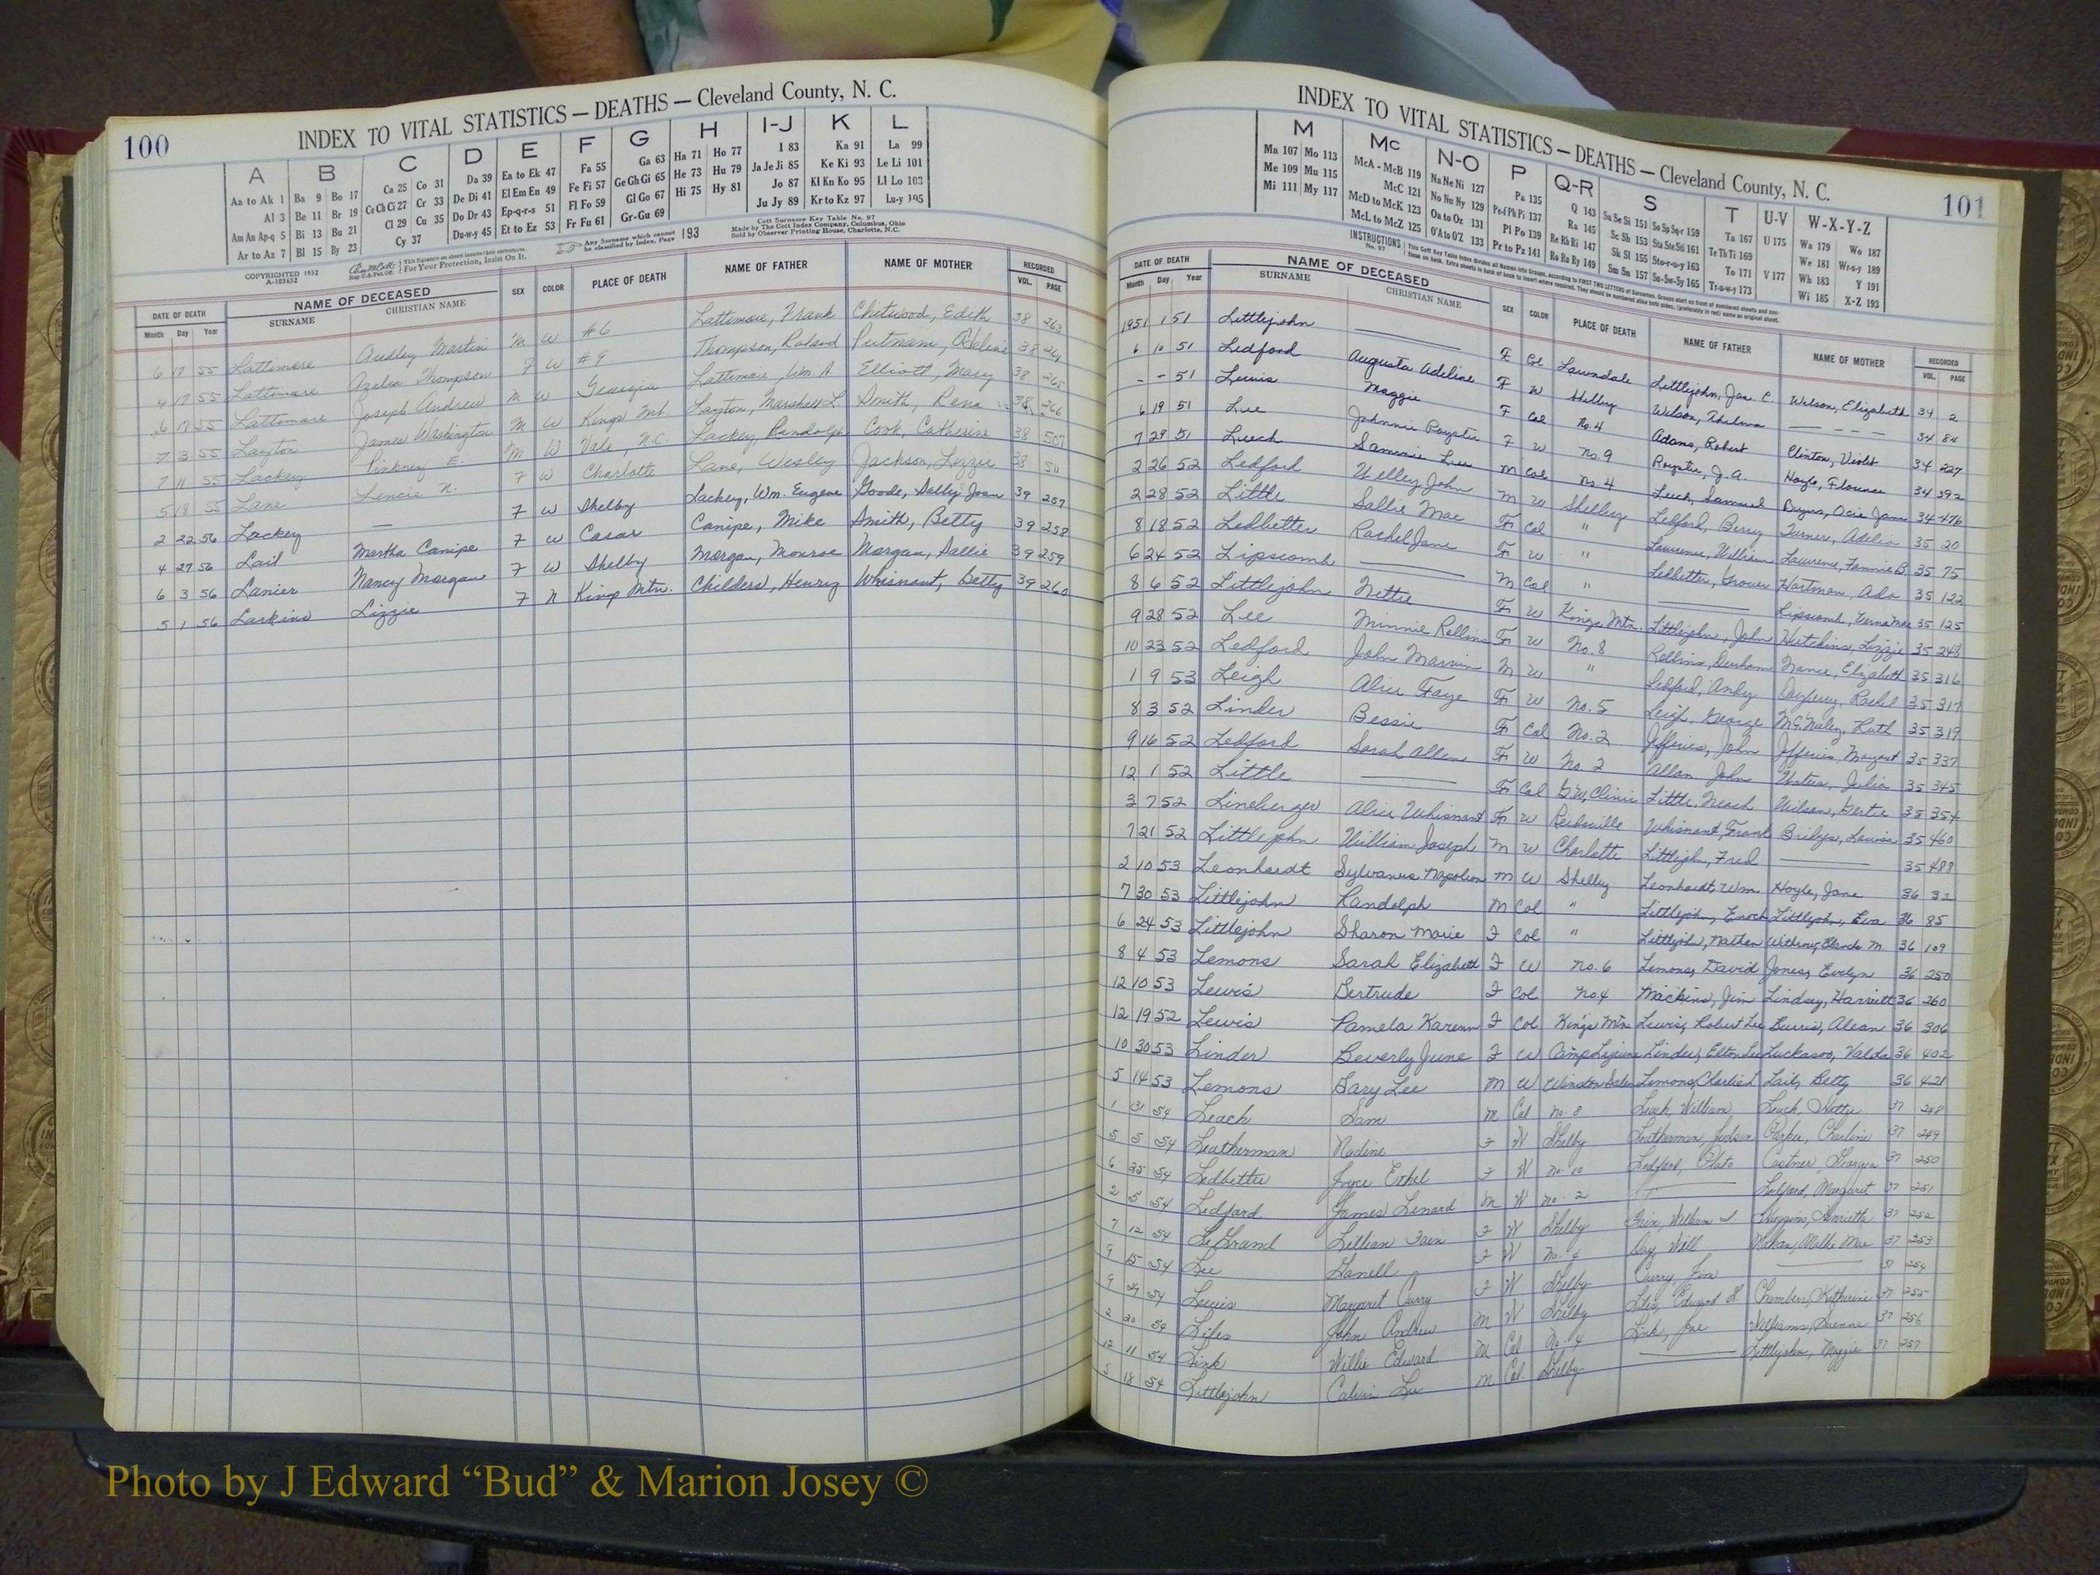 100
INDEX TO VITAL STATISTICS — DEATHS — Cleveland County, N. C.
A B C D E F G H I-J K L
Aa to Ak 1 Ba 9 Bo 17 Ca 25 Co 31 Da 39 Ea to Ek 47 Fa 55 Ga 63 Ha 71 Ho 77 I 83 Ka 91 La 99
Al 3 Be 11 Br 19 Ce Ch Ci 27 Cr 33 De Di 41 El Em En 49 Fe Fi 57 Ge Gh Gi 65 He 73 Hu 79 Ja Je Ji 85 Ke Ki 93 Le Li 101
Am An Ap-q 5 Bi 13 Bu 21 Cl 29 Cu 35 Do Dr 43 Ep-q-r-s 51 Fl Fo 59 Gl Go 67 Hi 75 Hy 81 Jo 87 Kl Kn Ko 95 Ll Lo 103
Ar to Az 7 Bl 15 By 23 Cy 37 Du-w-y 45 Et to Ez 53 Fr Fu 61 Gr-Gu 69 Ju Jy 89 Kr to Kz 97 Lu-y 105
COPYRIGHTED 1932
A-105652
For Your Protection, Insist On It.
Any Surname which cannot be classified by Index, Page 193
Cott Surname Key Table No. 97
Made by The Cott Index Company, Columbus, Ohio
Sold by Observer Printing House, Charlotte, N.C.
DATE OF DEATH NAME OF DECEASED SEX COLOR PLACE OF DEATH NAME OF FATHER NAME OF MOTHER RECORDED
Month Day Year SURNAME CHRISTIAN NAME VOL. PAGE
6 17 55 Lattimore Audley Martin M W #6 Lattimore, Frank Chitwood, Edith 38 263
4 17 55 Lattimore Azelia Thompson F W #9 Thompson, Roland Putnam, 38 264
6 17 55 Lattimore Joseph Andrew M W Georgia Lattimore, Wm. A. Elliott, Mary 38 265
7 3 55 Layton James Washington M W Kings Mt. Layton, Marshall L Smith, Rena 38 266
7 11 55 Lackey Pinkney E. M W Vale, N.C. Lackey Randolph Cook, Catherine 38 507
5 18 55 Lane N. F W Charlotte Lane, Wesley Jackson, Lizzie 38 511
2 22 56 Lackey — F W Shelby Lackey, Wm. Eugene Goode, Sally Jean 39 257
4 27 56 Lail Martha Canipe F W Casar Canipe, Mike Smith, Betty 39 258
6 3 56 Lanier Nancy Morgan F W Shelby Morgan, Monroe Morgan, Sallie 39 259
5 1 56 Larkins Lizzie F N Kings Mtn. Childers, Henry Whisnant, Betty 39 260
INDEX TO VITAL STATISTICS — DEATHS — Cleveland County, N. C.
101
M Mc N-O P Q-R S T U-V W-X-Y-Z
Ma 107 Mo 113 McA - McB 119 Na Ne Ni 127 Pa 135 Q 143 Sa Se Si 151 So Sp Sq-r 159 Ta 167 U 175 Wa 179 Wo 187
Me 109 Mu 115 McC 121 No Nu Ny 129 Pe-f Ph Pi 137 Ra 145 Sc Sh 153 Sta Ste Sti 161 Te Th Ti 169 We 181 Wr-u-y 189
Mi 111 My 117 McD to McK 123 Oa to Oz 131 Pl Po 139 Re Rh Ri 147 Sk Sl 155 Sto-r-u-y 163 To 171 V 177 Wh 183 Y 191
McL to McZ 125 O'A to O'Z 133 Pr to Pz 141 Ro Ru Ry 149 Sm Sn 157 Su-Sw-Sy 165 Tr-u-w-y 173 Wi 185 X-Z 193
DATE OF DEATH NAME OF DECEASED SEX COLOR PLACE OF DEATH NAME OF FATHER NAME OF MOTHER RECORDED
Month Day Year SURNAME CHRISTIAN NAME VOL. PAGE
1951 1 51 Littlejohn — F Col Lawndale Littlejohn, Jas. C. Wilson, Elizabeth 34 2
6 10 51 Ledford Augusta Adeline F W Shelby Wilson, — — — — 34 84
- - 51 Lewis Maggie F Col No. 4 Adams, Robert Clinton, Violet 34 227
6 19 51 Lee Johnnie Royster F W No. 9 Royster, J. A. Hoyle, Florence 34 392
7 29 51 Leech Sammie Lee M Col No. 4 Leech, Samuel Byers, Ocie Jane 34 476
2 26 52 Ledford Welley John M W Shelby Ledford, Berry Turner, Adelia 35 20
2 28 52 Little Sallie Mae F Col " Lawrence, William Lawrence, Fannie B. 35 75
8 18 52 Ledbetter Rachel Jane F W " Ledbetter, Grover Hartman, Ada 35 122
6 24 52 Lipscomb — M Col " — Lipscomb, Verna Mae 35 125
8 6 52 Littlejohn Nettie F W Kings Mtn. Littlejohn, John Hutchins, Lizzie 35 248
9 28 52 Lee Minnie Rollins F W No. 8 Rollins, Durham Nance, Elizabeth 35 316
10 23 52 Ledford John Marvin M W " Ledford, Andy Rachel 35 317
1 9 53 Leigh Alice Faye F W No. 5 Leigh, George McNeily, Ruth 35 319
8 3 52 Linder Bessie F Col No. 2 Jefferies, John Jefferies, Margaret 35 337
9 16 52 Ledford Sarah Allen F W No. 2 Allen John Waters, Julia 35 345
12 1 52 Little — F Col G.W. Clinic Little, Wilson, Gertie 35 354
3 7 52 Lineberger Alice Whisnant F W Reidsville Whisnant, Frank Bridges, Louisa 35 460
7 21 52 Littlejohn William Joseph M W Charlotte Littlejohn, Fred — 35 488
2 10 53 Leonhardt Sylvanus Napoleon M W Shelby Leonhardt, Wm Hoyle, Jane 36 32
7 30 53 Littlejohn Randolph M Col " Littlejohn, Enoch Littlejohn, Eva 36 85
6 24 53 Littlejohn Sharon Marie F Col " Littlejohn, Nathan Withrow, M. 36 109
8 4 53 Lemons Sarah Elizabeth F W No. 6 Lemons, David Jones, Evelyn 36 250
12 10 53 Lewis Gertrude F Col No 4 Mickins, Jim Lindsey, Harriett 36 260
12 19 52 Lewis Pamela Karenn F Col Kings Mtn Lewis, Robert Lee Burris, Alean 36 306
10 30 53 Linder Beverly June F W Camp Lejeune Linder, Elton Lee Luckasoo, Valda 36 402
5 14 53 Lemons Gary Lee M W Winston Salem Lemons, Charlie L Lail, Betty 36 421
1 31 54 Leach Sam M Col No. 8 Leach, William Leach, Hettie 37 248
5 5 54 Leatherman Nadine F W Shelby Leatherman, Judson Parker, Charline 37 249
6 25 54 Ledbetter Joyce Ethel F W No. 10 Ledford, Plato Costner, Georgia 37 250
2 5 54 Ledford James Lenard M W No. 2 — Ledford, Margaret 37 251
7 12 54 LeGrand Lillian Fain F W Shelby Fain, William Huggins, Henrietta 37 252
9 15 54 Lee Lanell F W No. 4 Day, Will Mahan, Mollie Mae 37 253
9 29 54 Lewis Margaret Curry F W Shelby Curry, Jim — 37 254
2 20 54 Liles John Andrew M W Shelby Liles, Edward H. Chambers, Katherine 37 255
12 11 54 Link Willie Edward M Col No. 4 Link, Joe Williams, 37 256
5 18 54 Littlejohn Calvin Lee M Col. Shelby — Littlejohn, Maggie 37 257
Photo by J Edward “Bud” & Marion Josey ©